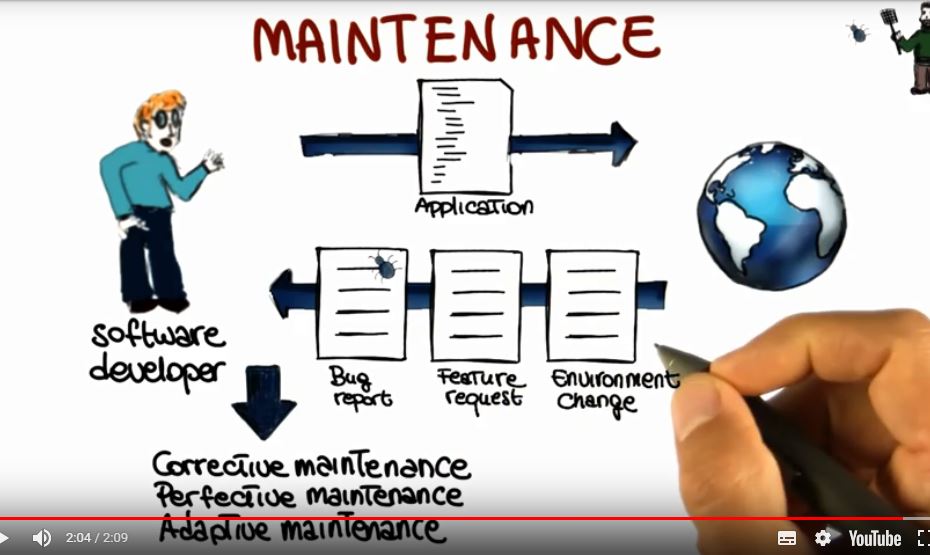 MAINTENANCE
Application
software
developer
Bug
report
Feature
request
Environment
change
Corrective maintenance
Perfective maintenance
Adaptive maintenance
2:04 / 2:09
YouTube